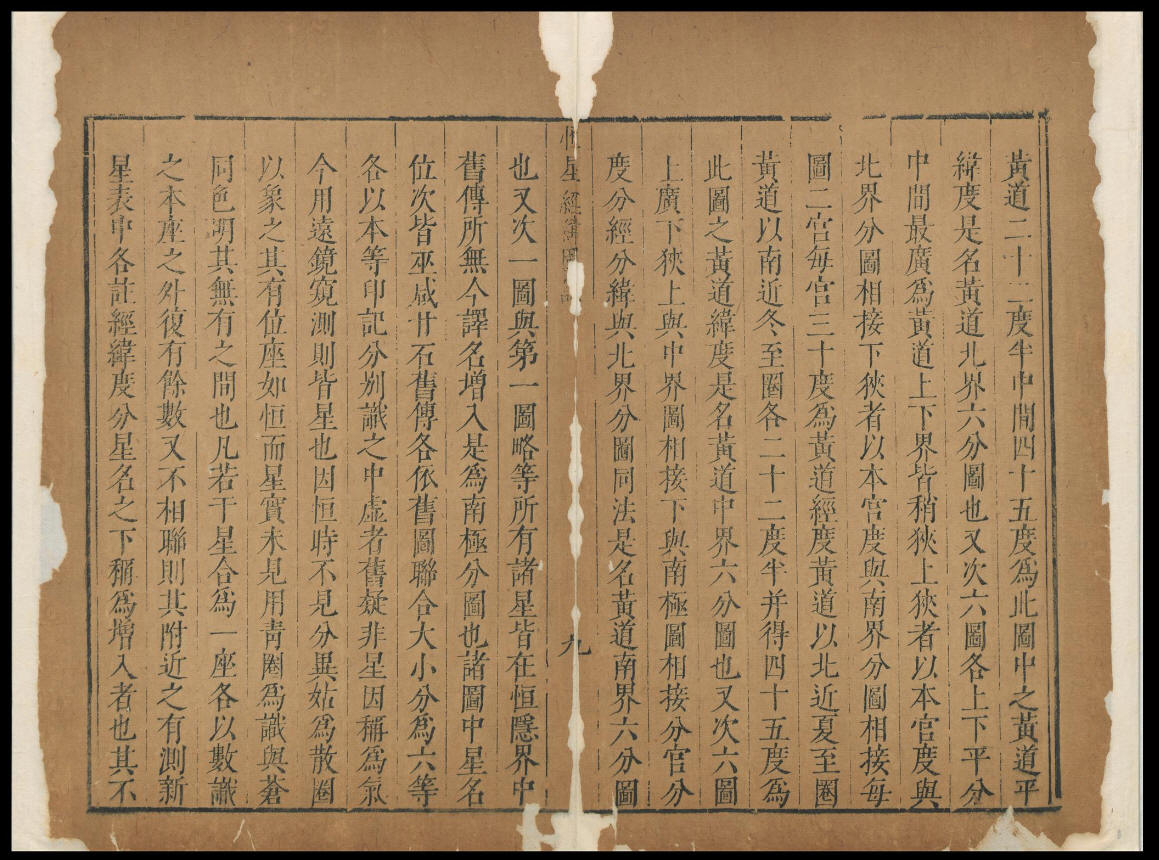 黃道二十二度半中間四十五度爲此圖中之黃道平
緯度是名黃道北界六分圖也又次六圖各上下平分
中間最廣爲黃道上下界皆稍狹上狹者以本宮度與
北界分圖相接下狹者以本宮度與南界分圖相接每
圖二宮每宮三十度爲黃道經度黃道以北近夏至圈
黃道以南近冬至圈各二十二度半并得四十五度爲
此圖之黃道緯度是名黃道中界六分圖也又次六圖
上廣下狹上與中界圖相接下與南極圖相接分宮分
度分經分緯與北界分圖同法是名黃道南界六分圖
恒星經緯圖說
九
也又次一圖與第一圖略等所有諸星皆在恒隱界中
舊傳所無今譯名增入是爲南極分圖也諸圖中星名
位次皆巫咸甘石舊傳各依舊圖聯合大小分爲六等
各以本等印記分別識之中虛者舊疑非星因稱爲氣
今用遠鏡窺測則皆星也因恒時不見分異姑爲散圈
以象之其有位座如恒而星實未見用青圈爲識與蒼
同色明其無有之間也凡若干星合爲一座各以數識
之本座之外復有餘數又不相聯則其附近之有測新
星表中各註經緯度分星名之下稱爲增入者也其不